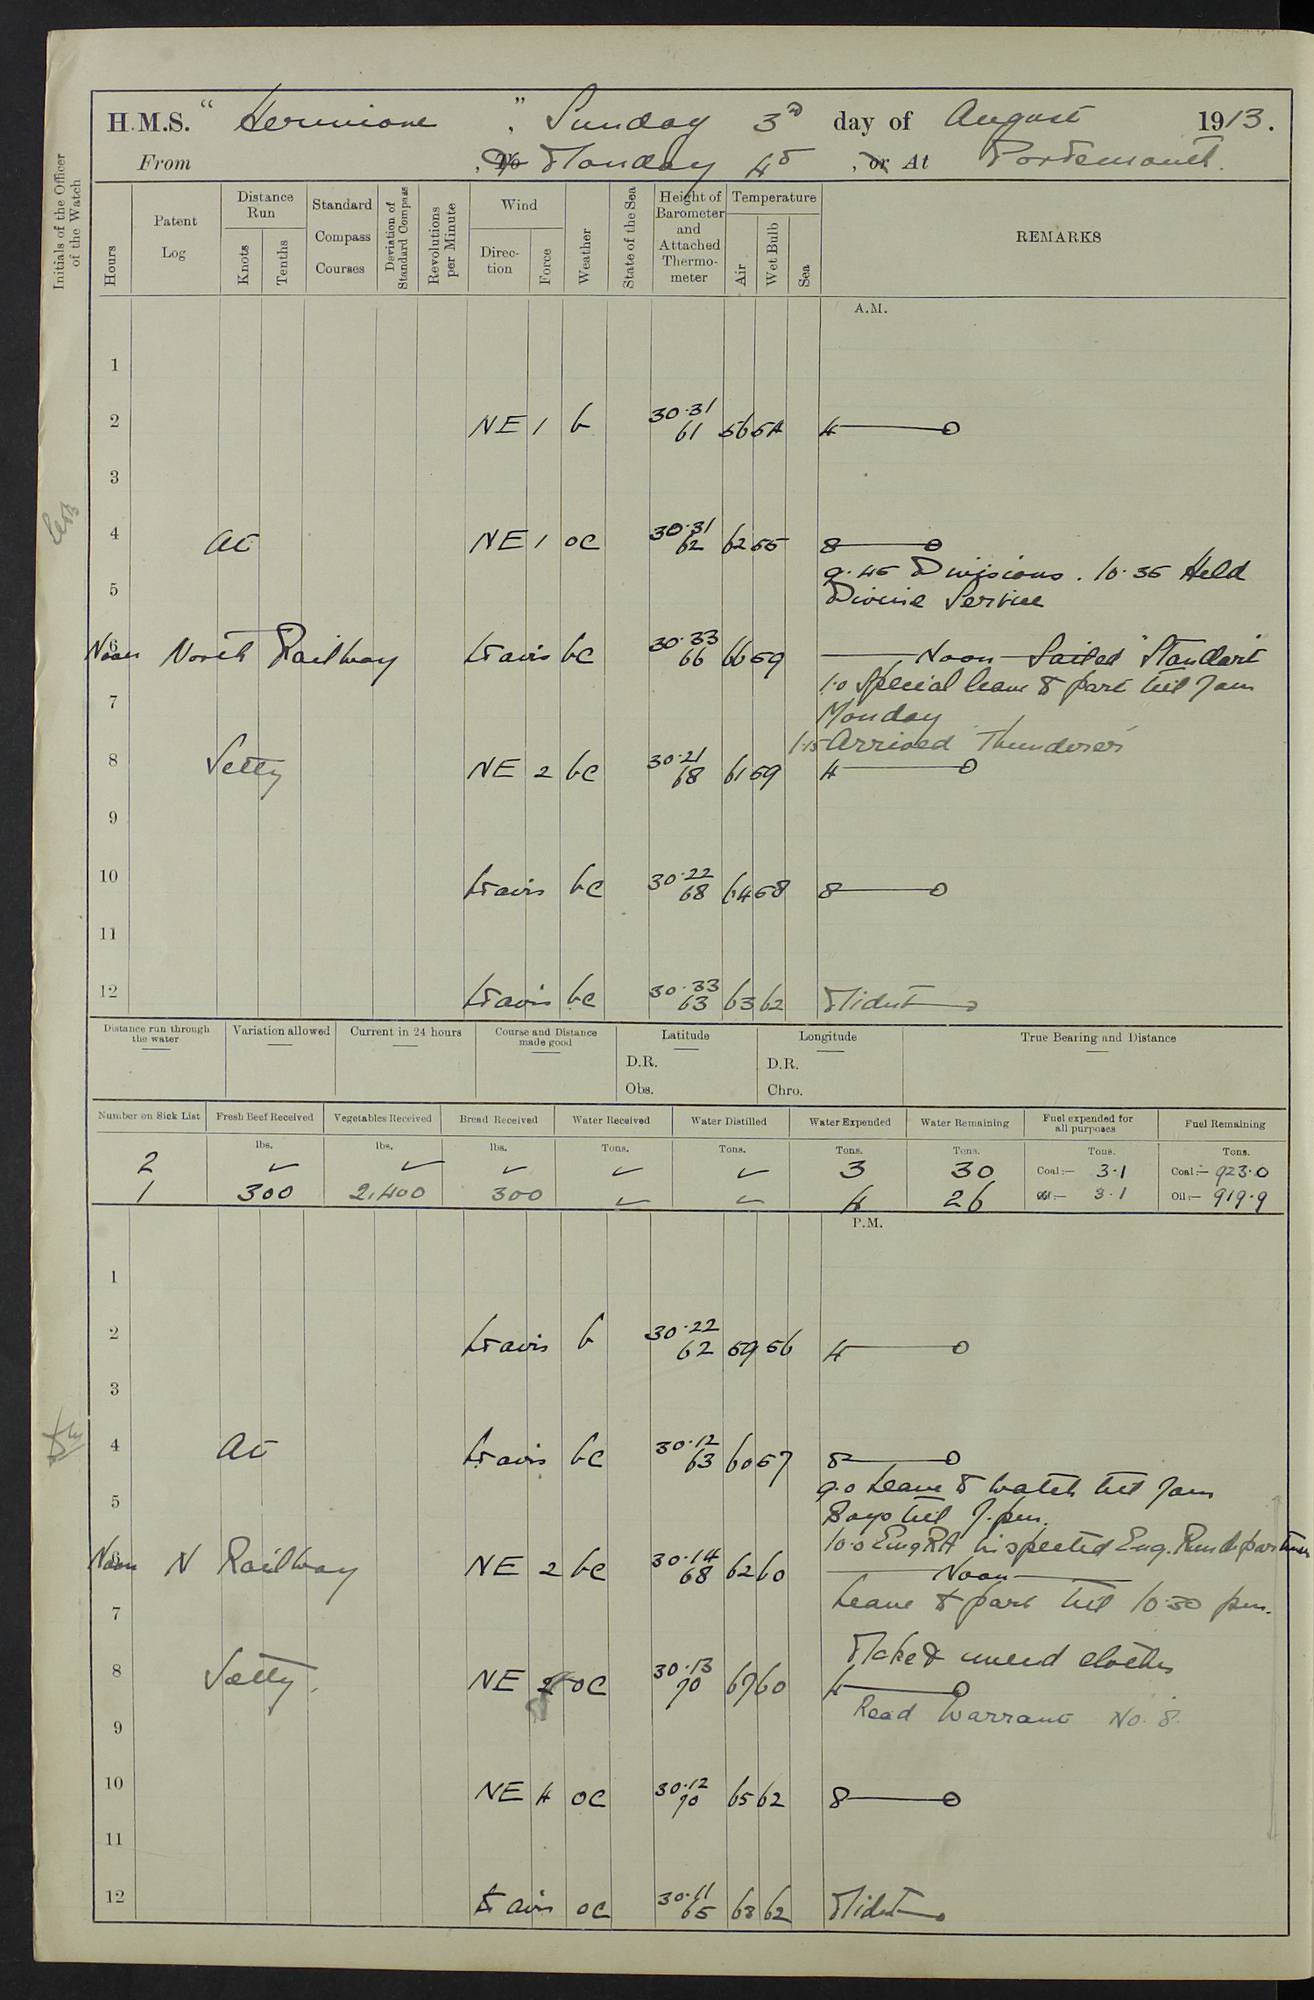 H.M.S. "Hermione", Sunday 3rd day of August 1913.
From , To Monday 4th , or At Portsmouth.
Initials of the Officer of the Watch
Hours
Patent Log
Distance Run
Knots
Tenths
Standard Compass Courses
Deviation of Standard Compass
Revolutions per Minute
Wind
Direction
Force
Weather
State of the Sea
Height of Barometer and Attached Thermometer
Temperature
Air
Wet Bulb
Sea
REMARKS
A.M.
1
2 NE 1 b 30.31 61 56 54 4
3
4 At NE 1 oc 30.31 62 62 55 8
9.45 Divisions. 10.35 Held
5 Divine Service
6 Noon North Railway Lt airs bc 30.33 66 66 59 Noon Sailed "Standart"
1.0 Special leave to part till 7 am
7 Monday
1.15 Arrived Thunderer
8 Jetty NE 2 bc 30.21 68 61 59 4
9
10 Lt airs bc 30.22 68 64 58 8
11
12 Lt airs bc 30.33 63 63 62 Midnt
Distance run through the water
Variation allowed
Current in 24 hours
Course and Distance made good
Latitude
D.R.
Obs.
Longitude
D.R.
Chro.
True Bearing and Distance
Number on Sick List Fresh Beef Received Vegetables Received Bread Received Water Received Water Distilled Water Expended Water Remaining Fuel expended for all purposes Fuel Remaining
lbs. lbs. lbs. Tons. Tons. Tons. Tons. Tons. Tons.
2 ✓ ✓ ✓ ✓ ✓ 3 30 Coal:— 3.1 Coal:— 923.0
1 300 2,400 300 ✓ ✓ 4 26 Oil:— 3.1 Oil:— 919.9
P.M.
1
2 Lt airs b 30.22 62 59 56 4
3
4 At Lt airs bc 30.12 63 60 57 8
9.0 Leave to watch till 7 am
5 Boys till 7. pm.
10.0 Eng RA inspected Eng. Rm departmen
6 Noon N Railway NE 2 bc 30.14 68 62 60 Noon
7 Leave to part till 10.30 pm.
Make & mend clothes
8 Jetty. NE 2 oc 30.13 70 67 60 4
Read Warrant No. 8.
9
10 NE 4 oc 30.12 70 65 62 8
11
12 Lt airs oc 30.11 65 63 62 Midnt